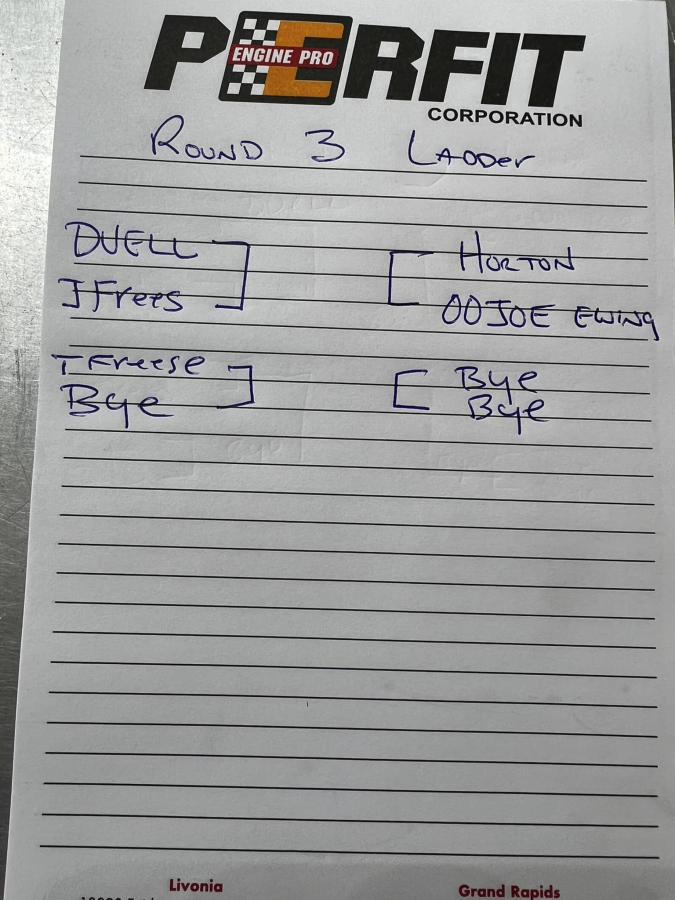 PERFIT
ENGINE PRO
CORPORATION
ROUND 3 LADDer
DUELL
HORTON
JFrees
00 JOE EWING
T Freese
Bye
Bye
Bye
Livonia
Grand Rapids